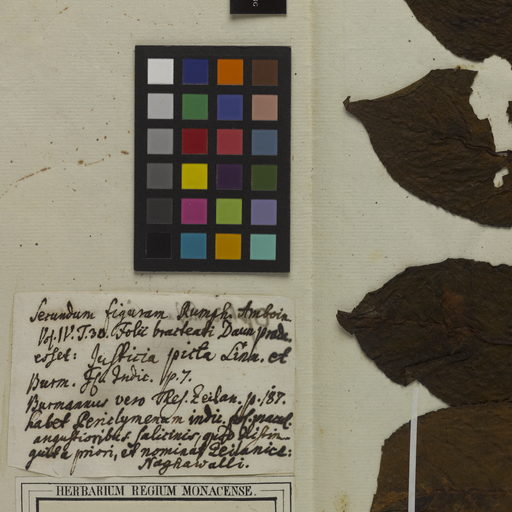 Secundum figuram Rumph. Amboin
Vol. IV. T. 30. Folii bracteati
esset: Justicia picta Linn. et
Burm. Fl. Indic. p. 7.
Burmannus vero Thes. Zeilan. p. 187.
habet Periclymenum indic. fol. macul.
angustioribus, salicinis, quod distin
guit a priori, et nominat Zeilanice:
Naghawalli.
HERBARIUM REGIUM MONACENSE.